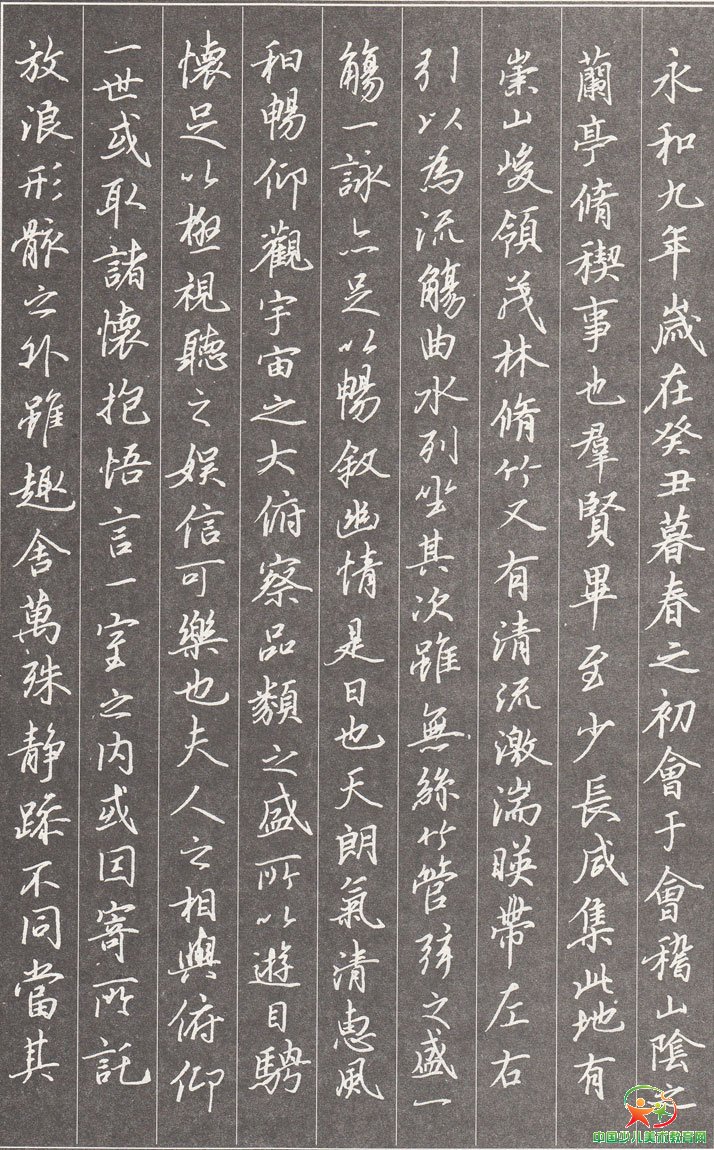 永和九年歲在癸丑暮春之初會于會稽山陰之
蘭亭脩稧事也羣賢畢至少長咸集此地有
崇山峻領茂林脩竹又有清流激湍暎帶左右
引以為流觴曲水列坐其次雖無絲竹管弦之盛一
觴一詠亦足以暢敘幽情是日也天朗氣清惠風
和暢仰觀宇宙之大俯察品類之盛所以遊目騁
懷足以極視聽之娛信可樂也夫人之相與俯仰
一世或取諸懷抱悟言一室之内或因寄所託
放浪形骸之外雖趣舍萬殊静躁不同當其
中国少儿美术教育网